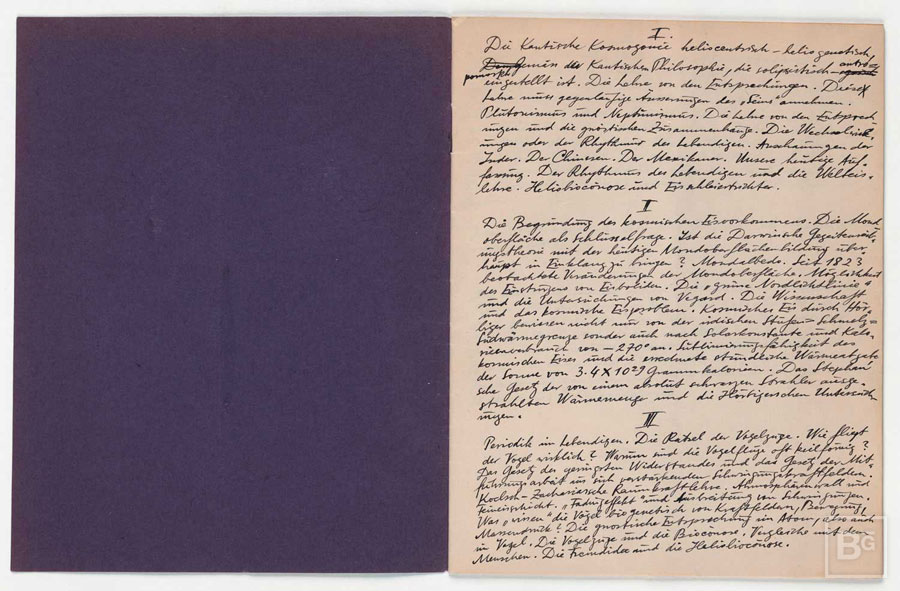 I.
Die Kantische Kosmogonie heliocentrisch – heliogenetisch,
gemäss der Kantischen Philosophie, die solipsistisch – antro=
pomorph eingestellt ist. Die Lehre von den Entsprechungen. Diese
Lehre muss gegenläufige Äusserungen des „Seins" annehmen.
Plutonismus und Neptunismus. Die Lehre von den Entsprech
ungen und die gnostischen Zusammenhänge. Die Wechsel
ungen oder der Rhythmus des Lebendigen. Anschauungen der
Inder. Der Chinesen. Der Mexikaner. Unsere heutige Auf-
fassung. Der Rhythmus des Lebendigen und die Welteis-
lehre. Heliobiocönose und Eisschleiertrichter.
I
Die Begründung des kosmischen Eisvorkommens. Die Mond
oberfläche als Schlüsselfrage. Ist die Darwinsche Gezeiten
theorie mit der heutigen Mondoberflächenbildung über
haupt in Einklang zu bringen? Mondalbedo. Seit 1823
beobachtete Veränderungen der Mondoberfläche. Möglichkeit
des Einstürzens von Eisboliden. Die „grüne Nordlichtlinie"
und die Untersuchungen von Vegard. Die Wissenschaft
und das kosmische Eisproblem. Kosmisches Eis durch Hör-
biger bewiesen nicht nur von der irdischen Stufen – Schmelz=
Südwärmegrenze sondern auch nach Solarkonstante und Kalo
rienverbrauch von – 270° an. Sublimierungsfähigkeit des
kosmischen Eises und die errechnete stündliche Wärmeabgabe
der Sonne von 3.4 X 10 29 Grammkalorien. Das Stephan
sche Gesetz der von einem absolut schwarzen Strahler ausge-
strahlten Wärmemenge und die Hörbigerschen Untersuch
ungen.
III
Periodik im Lebendigen. Die Rätsel der Vogelzüge. Wie fliegt
der Vogel wirklich? Warum sind die Vogelflüge oft keilförmig?
Das Gesetz des geringsten Widerstandes und das Gesetz der Mit-
führungsarbeit aus sich verstärkenden Schwingungskraftfeldern.
Koelsch – Zachariasche Raumkraftlehre. Atmosphärenwall und
Feineisschicht. „Fadingeffekt" und Ausbreitung von Schwingungen.
Was „wissen" die Vögel biogenetisch von Kraftfeldern, Bewegung,
Massendruck? Die gnostische Entsprechung im Atom, also auch
im Vogel. Die Vogelzüge und die Biocönose. Vergleiche mit dem
Menschen. Die und die Heliobiocönose.
BG